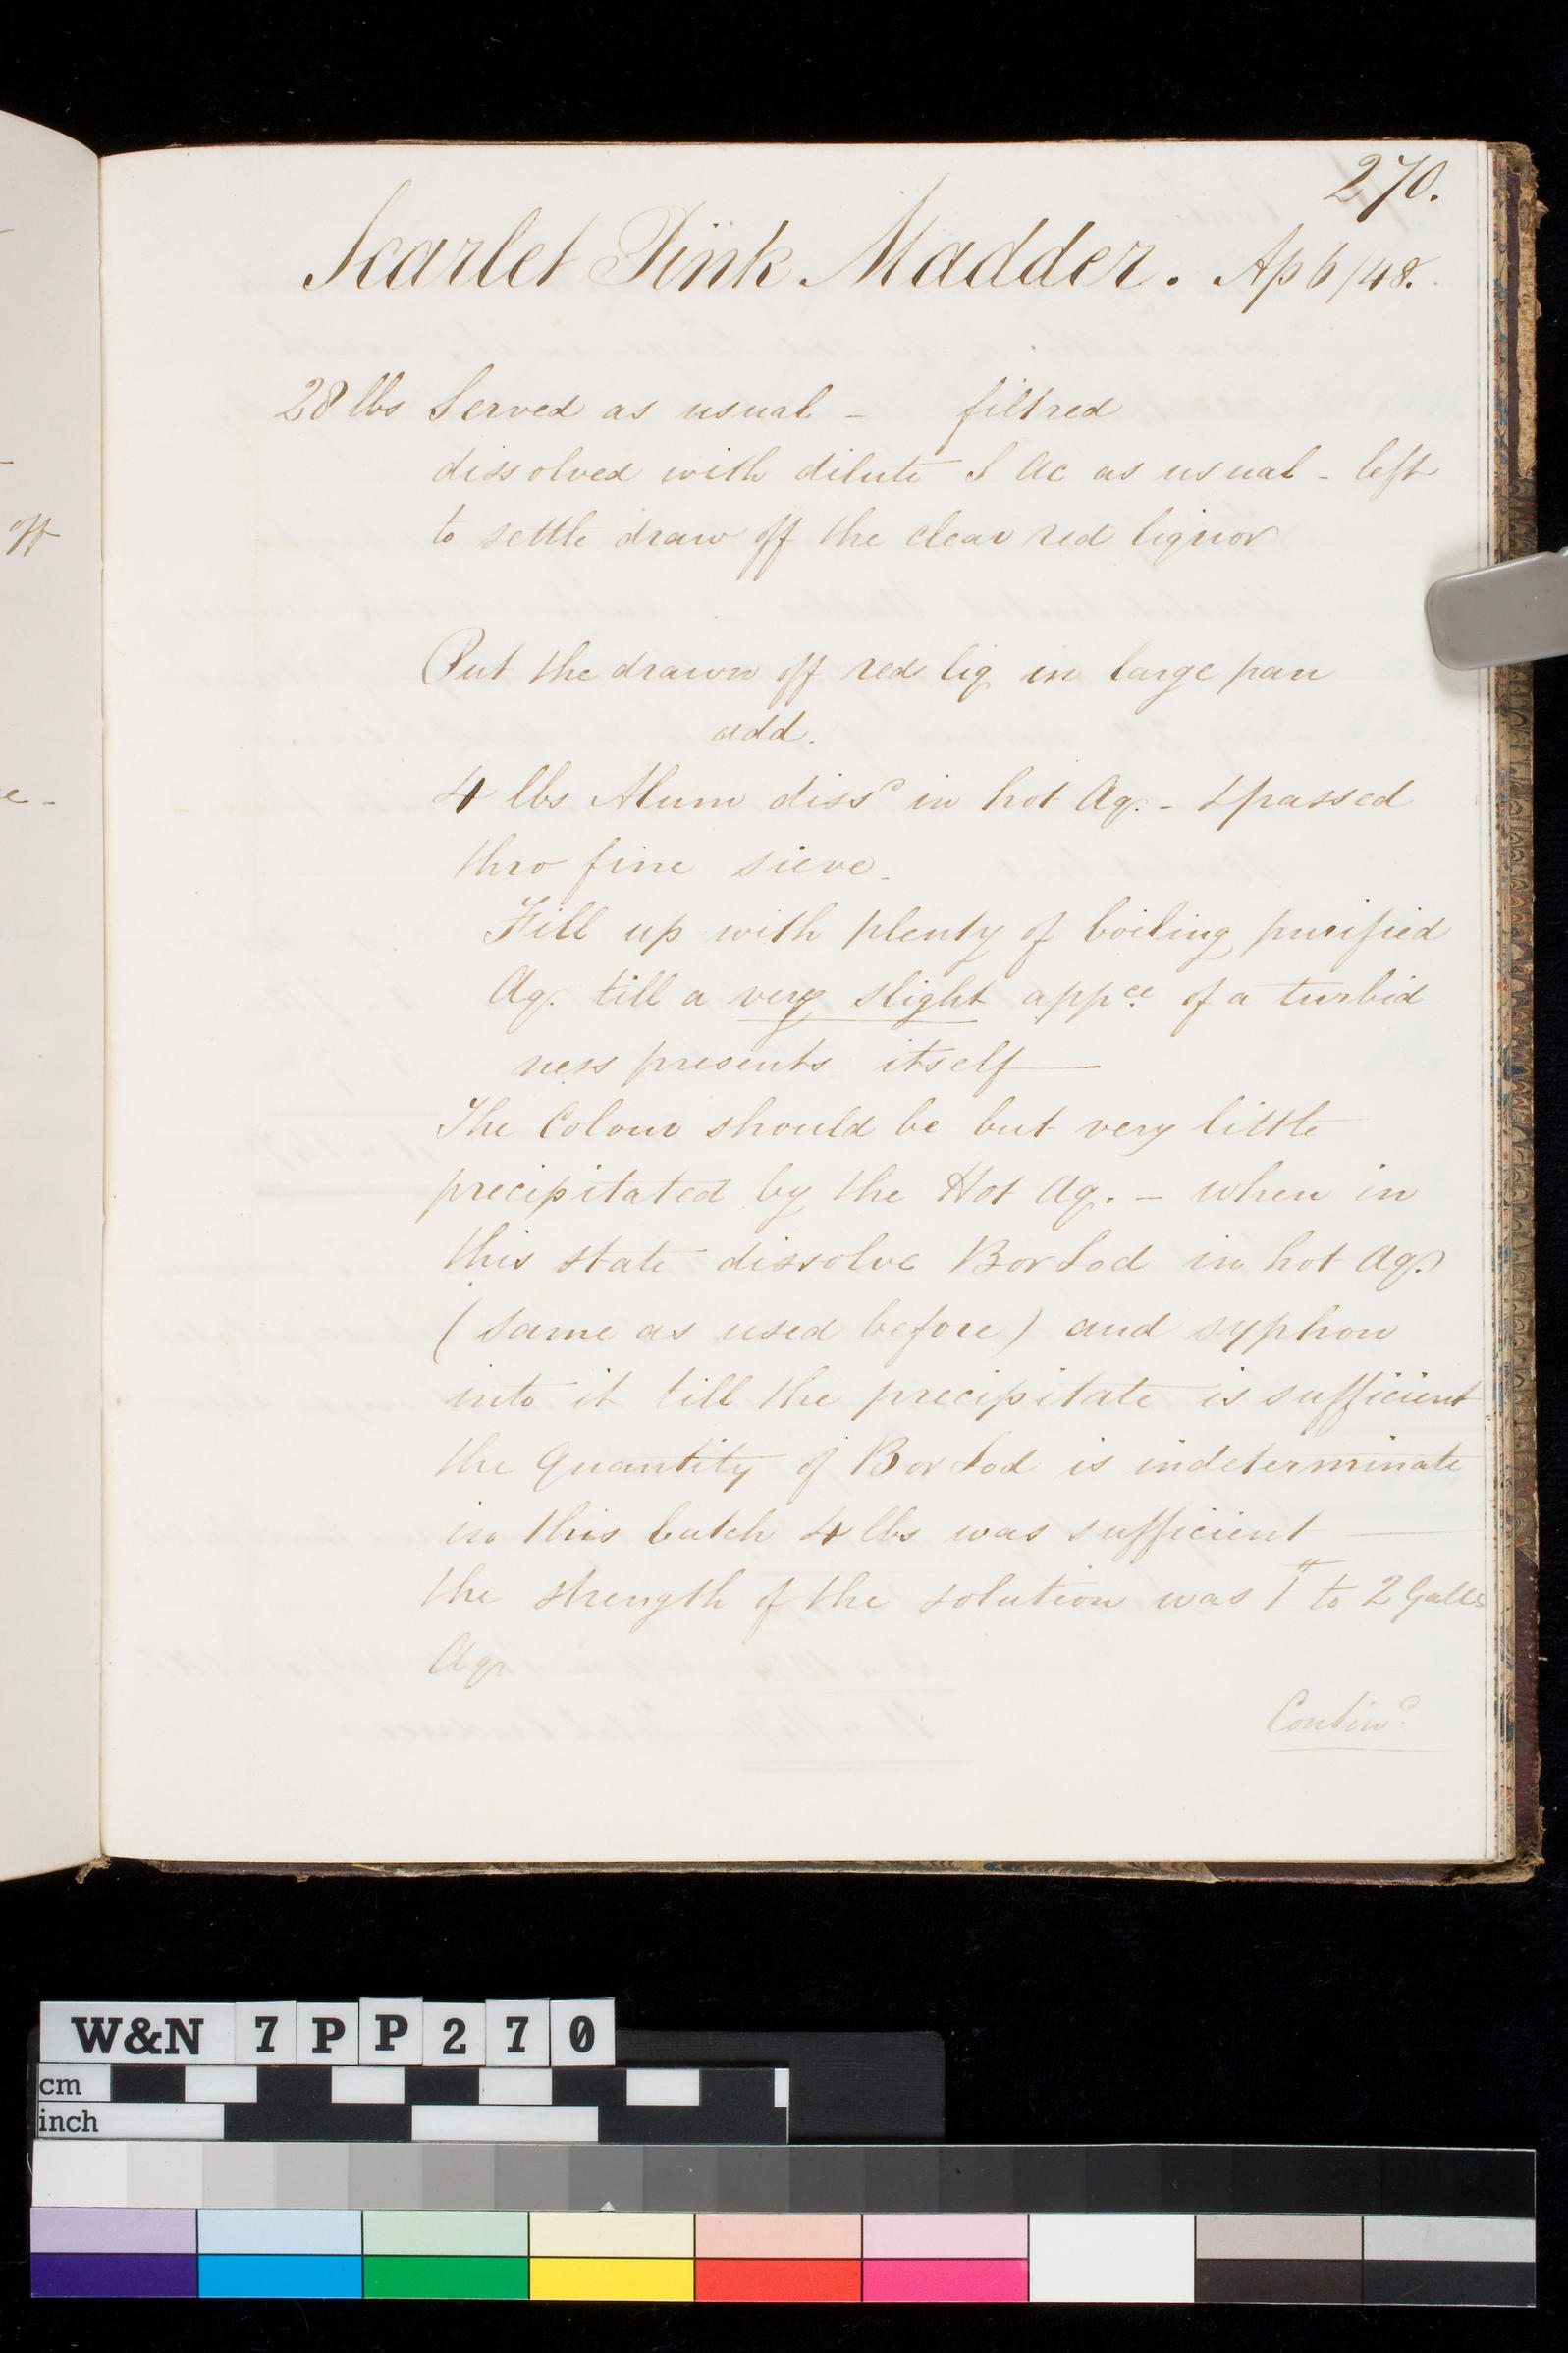 270.
Scarlet Pink Madder. Ap 6/48.
28 lbs Served as usual - filtred
dissolved with dilute S Ac as usual - left
to settle draw off the clear red liquor
off
Put the drawn off red liq in large pan
add.
4 lbs Alum dissd in hot Aq. - & passed
thro fine sieve.
e -
Fill up with plenty of boiling purified
Aq. till a very slight appce of a turbid
ness presents itself —
The Colour should be but very little
precipitated by the Hot Aq. - when in
this state dissolve Bor Sod in hot Aq.
(same as used before) and syphon
into it till the precipitate is sufficient
the Quantity of Bor Sod is indeterminate
in this batch 4 lbs was sufficient —
the strength of the solution was 1 tt to 2 Galls
Aq.
Contind.
W&N 7PP270
cm
inch